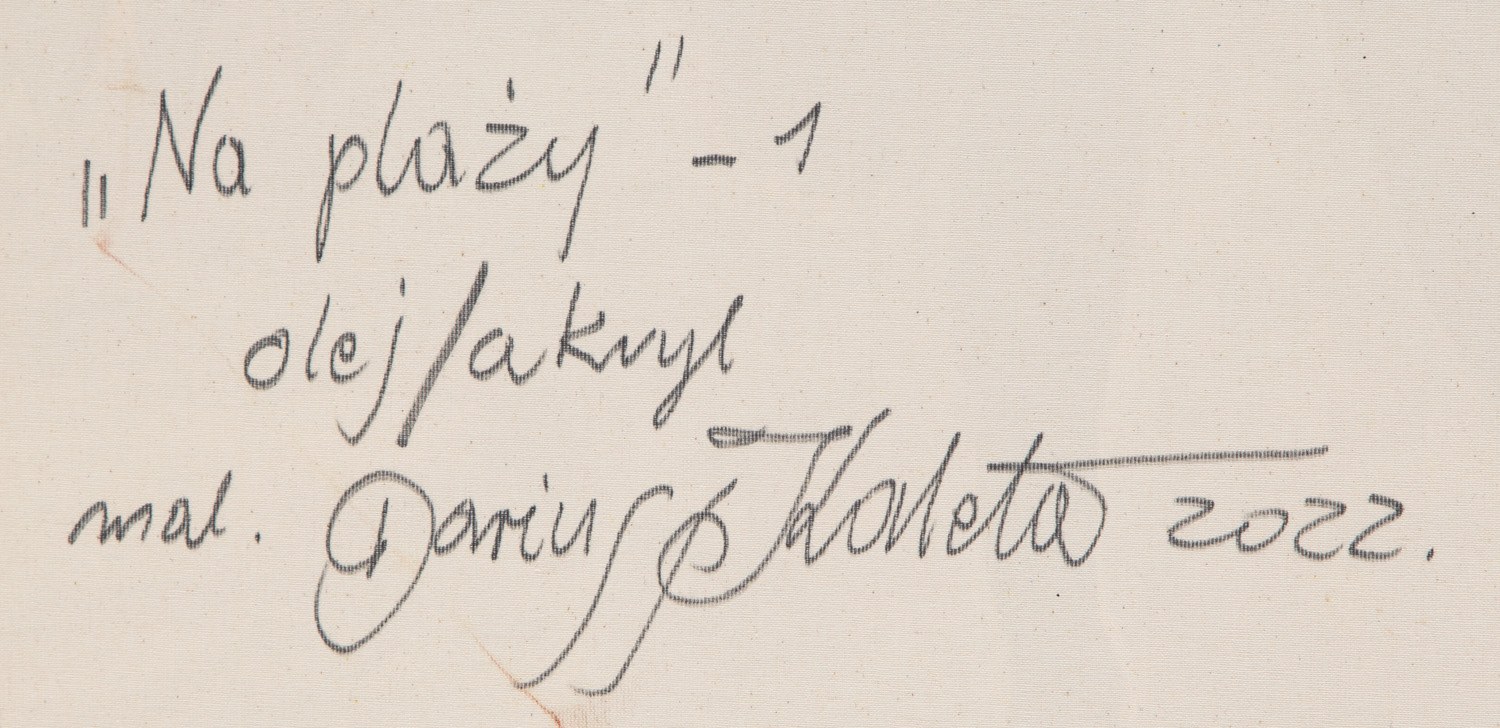 „Na plaży” - 1
olej/akryl
mal. Dariusz Kaleta 2022.